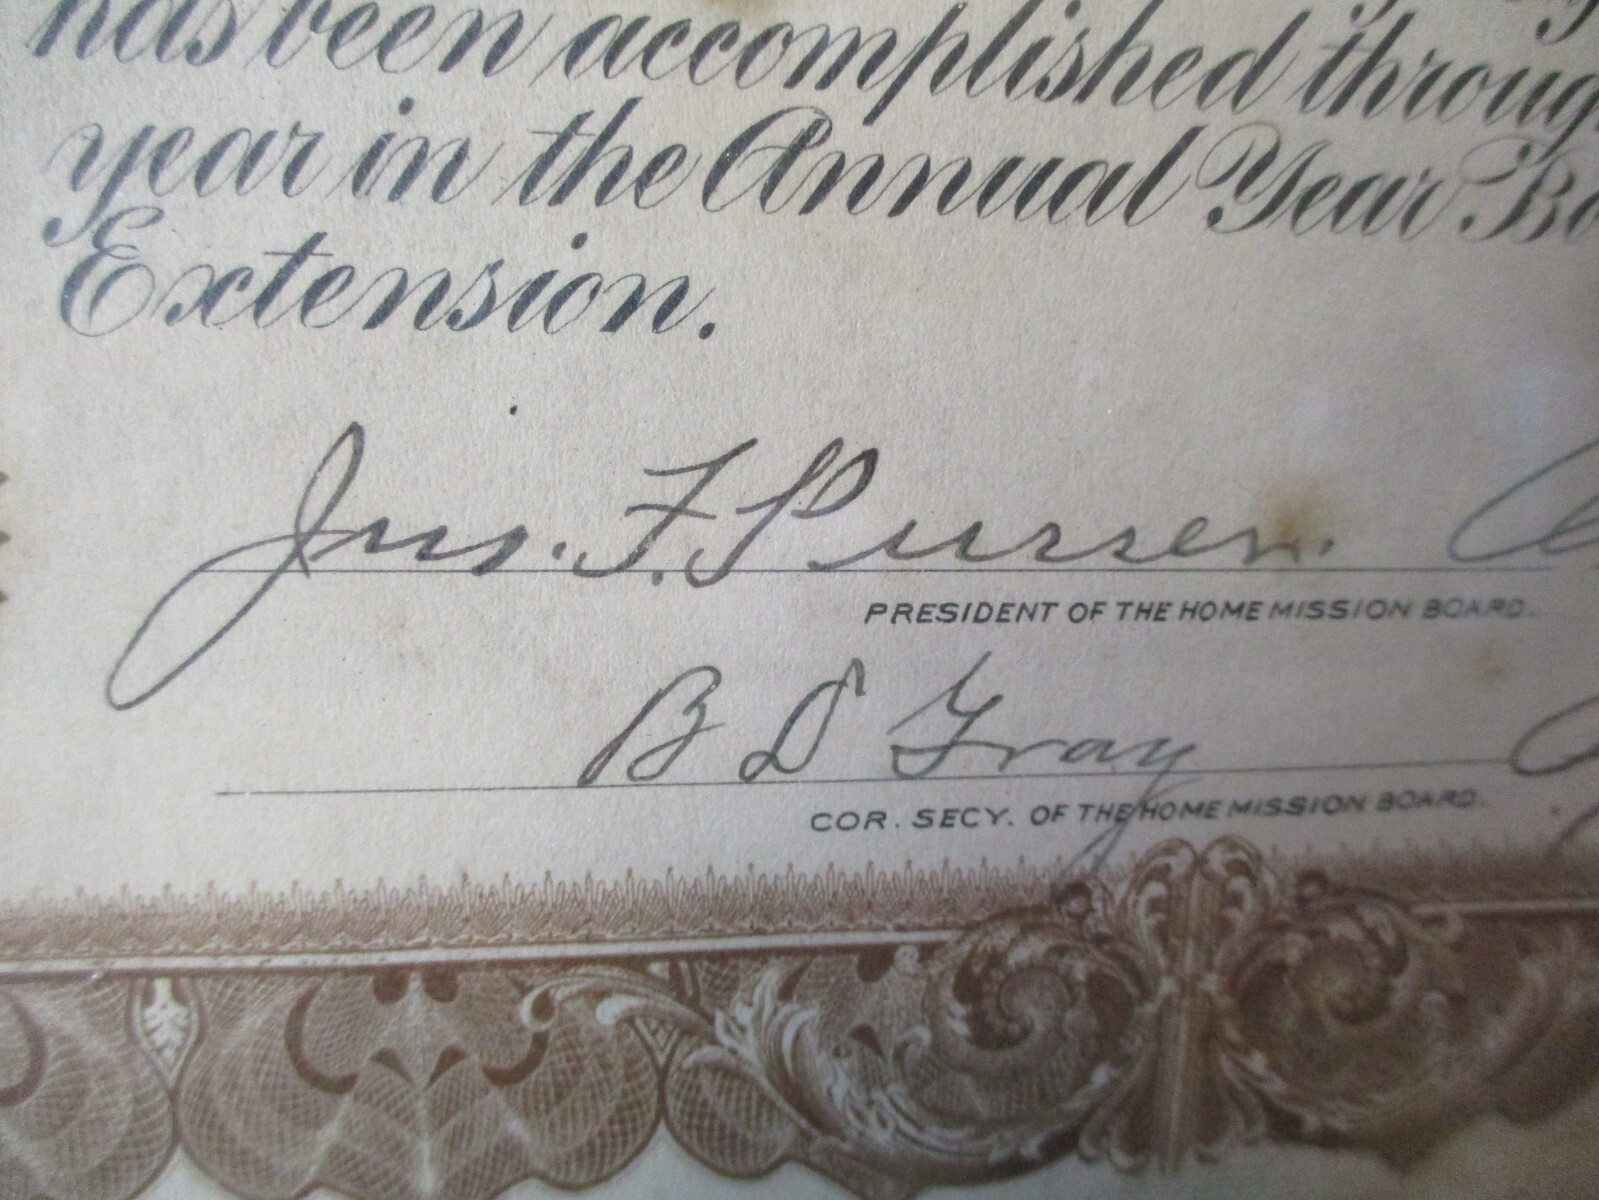 has been accomplished throug
year in the Annual Year Bo
Extension.
Jno. F. Purser.
PRESIDENT OF THE HOME MISSION BOARD.
B D Gray
COR. SECY. OF THE HOME MISSION BOARD.